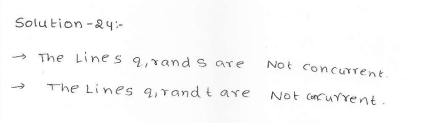 Solution-24:-
→ The Lines q,r and s are Not concurrent.
→ The Lines q,r and t are Not concurrent.